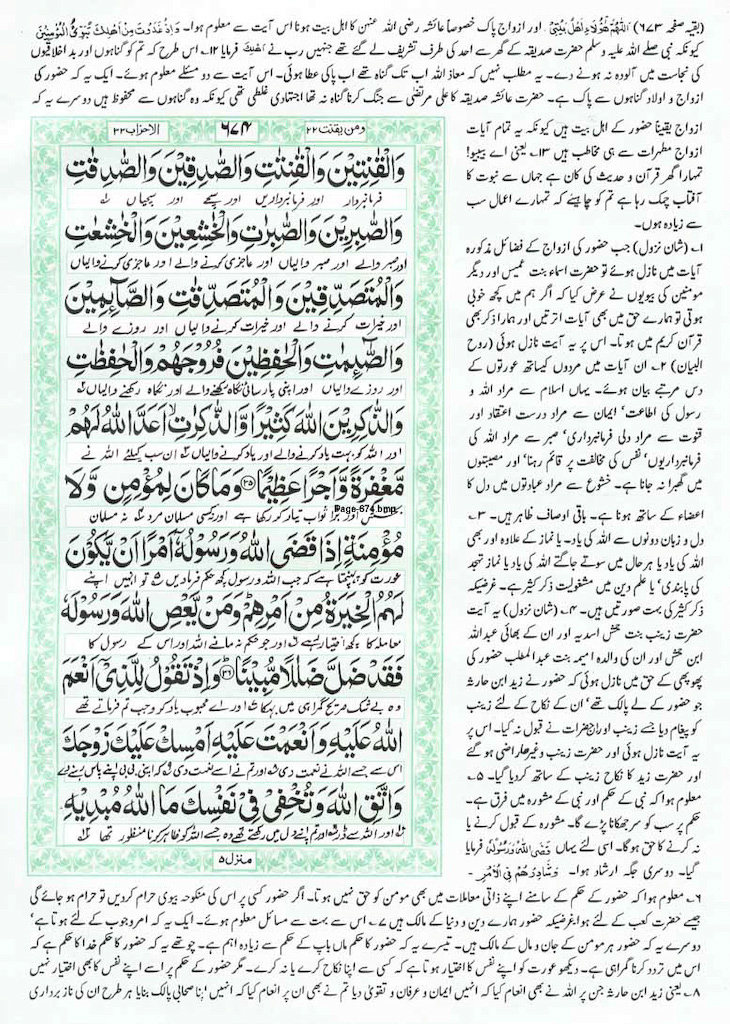 (بقیہ صفحہ ۶۷۳) اَللّٰهُمَّ هٰؤُلَاءِ اَهْلُ بَيْتِيْ۔ اور ازواج پاک خصوصاً عائشہ رضی اللہ عنہن کا اہل بیت ہونا اس آیت سے معلوم ہوا۔ وَاِذْ غَدَوْتَ مِنْ اَهْلِكَ تُبَوِّئُ الْمُؤْمِنِيْنَ
کیونکہ نبی صلے اللہ علیہ وسلم حضرت صدیقہ کے گھر سے احد کی طرف تشریف لے گئے تھے جنہیں رب نے اَهْلِكَ فرمایا ۱۲۔ اس طرح کہ تم کو گناہوں اور بد اخلاقیوں
کی نجاست میں آلودہ نہ ہونے دے۔ یہ مطلب نہیں کہ معاذ اللہ اب تک گناہ تھے اب پاکی عطا ہوئی۔ اس آیت سے دو مسئلے معلوم ہوئے۔ ایک یہ کہ حضور کی
ازواج و اولاد گناہوں سے پاک ہے۔ حضرت عائشہ صدیقہ کا علی مرتضٰی سے جنگ کرنا گناہ نہ تھا اجتہادی غلطی تھی کیونکہ وہ گناہوں سے محفوظ ہیں دوسرے یہ کہ
ازواج یقیناً حضور کے اہل بیت ہیں کیونکہ یہ تمام آیات
ازواج مطہرات سے ہی مخاطب ہیں ۱۳۔ یعنی اے بیبیو!
تمہارا گھر قرآن و حدیث کی کان ہے جہاں سے نبوت کا
آفتاب چمک رہا ہے تم کو چاہیئے کہ تمہارے اعمال سب
سے زیادہ ہوں۔
۱۔ (شان نزول) جب حضور کی ازواج کے فضائل مذکورہ
آیات میں نازل ہوئے تو حضرت اسماء بنت عمیس اور دیگر
مومنین کی بیویوں نے عرض کیا کہ اگر ہم میں کچھ خوبی
ہوتی تو ہمارے حق میں بھی آیات اترتیں اور ہمارا ذکر بھی
قرآن کریم میں ہوتا۔ اس پر یہ آیت نازل ہوئی (روح
البیان) ۲۔ ان آیات میں مردوں کیساتھ عورتوں کے
دس مرتبے بیان ہوئے۔ یہاں اسلام سے مراد اللہ و
رسول کی اطاعت' ایمان سے مراد درست اعتقاد اور
قنوت سے مراد دلی فرمانبرداری' صبر سے مراد اللہ کی
فرمانبرداریوں' نفس کی مخالفت پر قائم رہنا' اور مصیبتوں
میں گھبرا نہ جانا ہے۔ خشوع سے مراد عبادتوں میں دل کا
اعضاء کے ساتھ ہونا ہے۔ باقی اوصاف ظاہر ہیں۔ ۳۔
دل و زبان دونوں سے اللہ کی یاد۔ یا نماز کے علاوہ اور بھی
اللہ کی یاد یا ہر حال میں سوتے جاگتے اللہ کی یاد یا نماز تہجد
کی پابندی' یا علم دین میں مشغولیت ذکر کثیر ہے۔ غرضیکہ
ذکر کثیر کی بہت صورتیں ہیں۔ ۴۔ (شان نزول) یہ آیت
حضرت زینب بنت جحش اسدیہ اور ان کے بھائی عبداللہ
ابن جحش اور ان کی والدہ امیمہ بنت عبدالمطلب حضور کی
پھوپھی کے حق میں نازل ہوئی کہ حضور نے زید ابن حارثہ
جو حضور کے لے پالک تھے' ان کے نکاح کے لئے زینب
کو پیغام دیا جسے زینب اور ان حضرات نے قبول نہ کیا۔ اس پر
یہ آیت نازل ہوئی اور حضرت زینب وغیرھا راضی ہو گئے
اور حضرت زید کا نکاح زینب کے ساتھ کر دیا گیا۔ ۵۔
معلوم ہوا کہ نبی کے حکم اور نبی کے مشورہ میں فرق ہے۔
حکم پر سب کو سر جھکانا پڑے گا۔ مشورہ کے قبول کرنے یا
نہ کرنے کا حق ہوگا۔ اسی لئے یہاں قَضَى اللّٰهُ وَرَسُوْلُهٗ فرمایا
گیا۔ دوسری جگہ ارشاد ہوا۔ وَشَاوِرْهُمْ فِي الْاَمْرِ۔
ومن یقنت ۲۲ ۶۷۴ الاحزاب ۳۳
وَالْقٰنِتِيْنَ وَالْقٰنِتٰتِ وَالصّٰدِقِيْنَ وَالصّٰدِقٰتِ
فرمانبردار اور فرمانبرداریں اور سچے اور سچیاں
وَالصّٰبِرِيْنَ وَالصّٰبِرٰتِ وَالْخٰشِعِيْنَ وَالْخٰشِعٰتِ
اور صبر والے اور صبر والیاں اور عاجزی کرنے والے اور عاجزی کرنے والیاں
وَالْمُتَصَدِّقِيْنَ وَالْمُتَصَدِّقٰتِ وَالصَّآىِٕمِيْنَ
اور خیرات کرنے والے اور خیرات کرنے والیاں اور روزے والے
وَالصّٰٓىِٕمٰتِ وَالْحٰفِظِيْنَ فُرُوْجَهُمْ وَالْحٰفِظٰتِ
اور روزے والیاں اور اپنی پارسائی نگاہ رکھنے والے اور نگاہ رکھنے والیاں
وَالذّٰكِرِيْنَ اللّٰهَ كَثِيْرًا وَّالذّٰكِرٰتِ اَعَدَّ اللّٰهُ لَهُمْ
اور اللہ کو بہت یاد کرنے والے اور یاد کرنے والیاں ان سب کیلئے اللہ نے
مَّغْفِرَةً وَّاَجْرًا عَظِيْمًا ۝۳۵ وَمَا كَانَ لِمُؤْمِنٍ وَّلَا
بخشش اور بڑا ثواب تیار کر رکھا ہے اور کسی مسلمان مرد نہ مسلمان
Page-674.bmp
مُؤْمِنَةٍ اِذَا قَضَى اللّٰهُ وَرَسُوْلُهٗٓ اَمْرًا اَنْ يَّكُوْنَ
عورت کو پہنچتا ہے کہ جب اللہ و رسول کچھ حکم فرما دیں تو انہیں اپنے
لَهُمُ الْخِيَرَةُ مِنْ اَمْرِهِمْ وَمَنْ يَّعْصِ اللّٰهَ وَرَسُوْلَهٗ
معاملہ کا کچھ اختیار رہے اور جو حکم نہ مانے اللہ اور اس کے رسول کا
فَقَدْ ضَلَّ ضَلٰلًا مُّبِيْنًا ۝۳۶ وَاِذْ تَقُوْلُ لِلَّذِيْٓ اَنْعَمَ
وہ بے شک صریح گمراہی میں بہکا اور اے محبوب یاد کرو جب تم فرماتے تھے
اللّٰهُ عَلَيْهِ وَاَنْعَمْتَ عَلَيْهِ اَمْسِكْ عَلَيْكَ زَوْجَكَ
اس سے جسے اللہ نے نعمت دی اور تم نے اسے نعمت دی کہ اپنی بی بی اپنے پاس رہنے دے
وَاتَّقِ اللّٰهَ وَتُخْفِيْ فِيْ نَفْسِكَ مَا اللّٰهُ مُبْدِيْهِ
اور اللہ سے ڈر اور تم اپنے دل میں رکھتے تھے وہ جسے اللہ کو ظاہر کرنا منظور تھا
منزل ۵
۶۔ معلوم ہوا کہ حضور کے حکم کے سامنے اپنے ذاتی معاملات میں بھی مومن کو حق نہیں ہوتا۔ اگر حضور کسی پر اس کی منکوحہ بیوی حرام کر دیں تو حرام ہو جائے گی
جیسے حضرت کعب کے لئے ہوا غرضیکہ حضور ہمارے دین و دنیا کے مالک ہیں ۷۔ اس سے بہت سے مسائل معلوم ہوئے۔ ایک یہ کہ امر وجوب کے لئے ہوتا ہے'
دوسرے یہ کہ حضور ہر مومن کے جان و مال کے مالک ہیں۔ تیسرے یہ کہ حضور کا حکم ماں باپ کے حکم سے زیادہ اہم ہے۔ چوتھے یہ کہ حضور کا حکم خدا کا حکم ہے کہ
اس میں تردد کرنا گمراہی ہے۔ دیکھو عورت کو اپنے نفس کا اختیار ہوتا ہے کہ کسی سے اپنا نکاح کرے یا نہ کرے۔ مگر حضور کے حکم پر اسے اپنے نفس کا بھی اختیار نہیں
۸۔ یعنی زید ابن حارثہ جن پر اللہ نے بھی انعام کیا کہ انہیں ایمان و عرفان و تقویٰ دیا تم نے بھی ان پر انعام کیا کہ انہیں اپنا صحابی پالک بنایا ہر طرح ان کی ناز برداری